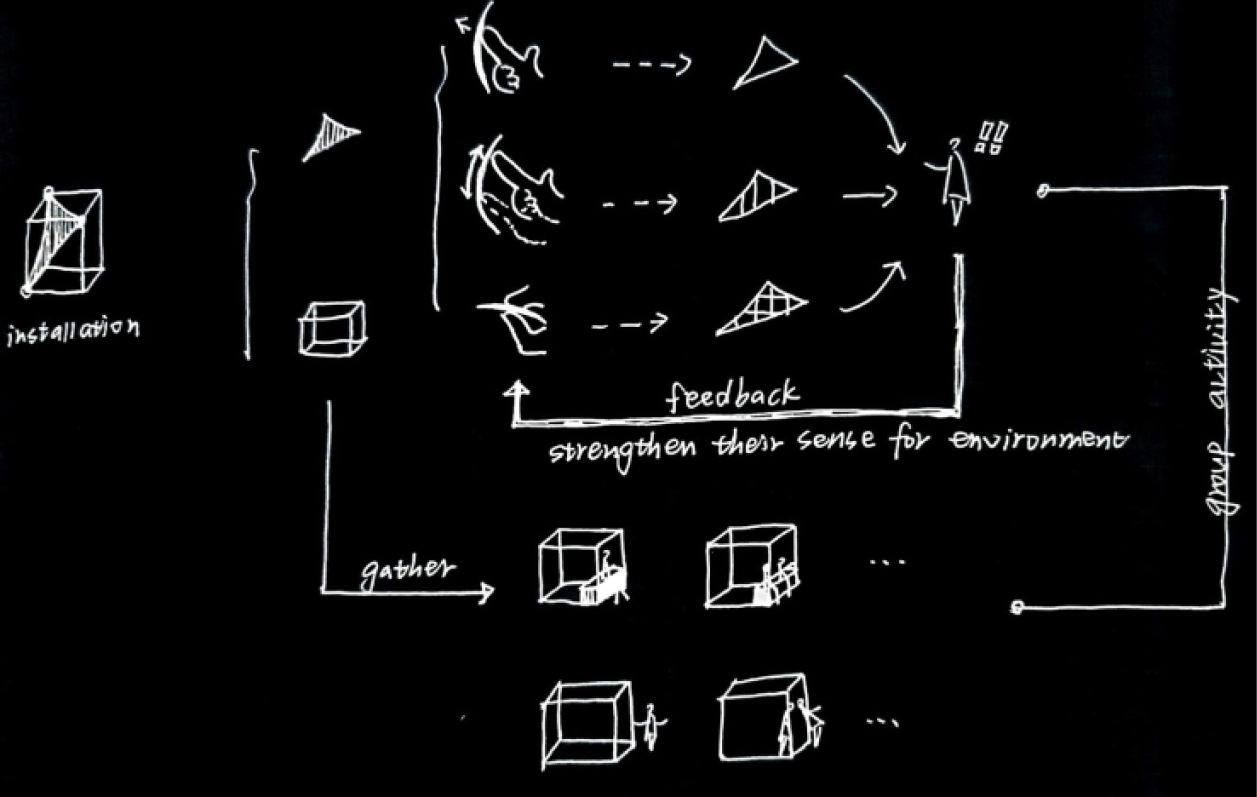 installation
feedback
strengthen their sense for environment
group activity
gather
...
...